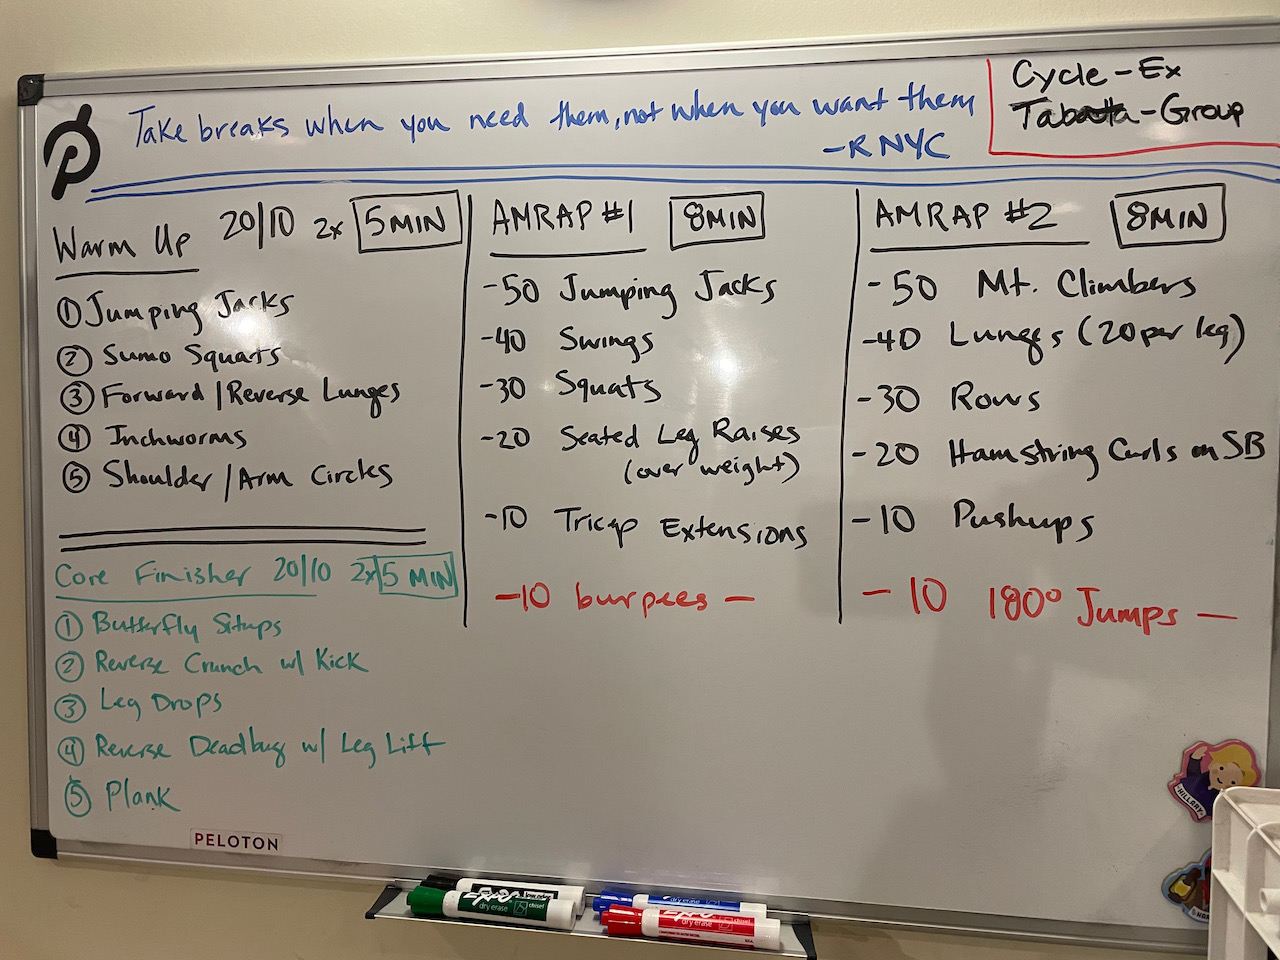 Take breaks when you need them, not when you want them
-R NYC
Cycle-Ex
Tabatta-Group
Warm Up 20/10 2x 5 MIN
① Jumping Jacks
② Sumo Squats
③ Forward/Reverse Lunges
④ Inchworms
⑤ Shoulder/Arm Circles
Core Finisher 20/10 2x 5 MIN
① Butterfly Situps
② Reverse Crunch w/ Kick
③ Leg Drops
④ Reverse Deadbug w/ Leg Lift
⑤ Plank
AMRAP #1 8MIN
-50 Jumping Jacks
-40 Swings
-30 Squats
-20 Seated Leg Raises
(over weight)
-10 Tricep Extensions
-10 burpees -
AMRAP #2 8MIN
-50 Mt. Climbers
-40 Lunges (20 per leg)
-30 Rows
-20 Hamstring Curls on SB
-10 Pushups
-10 180° Jumps -
HILLARY
PELOTON
EXPO
low odor
EXPO
dry erase
chisel
dry erase
EXPO
dry erase
chisel